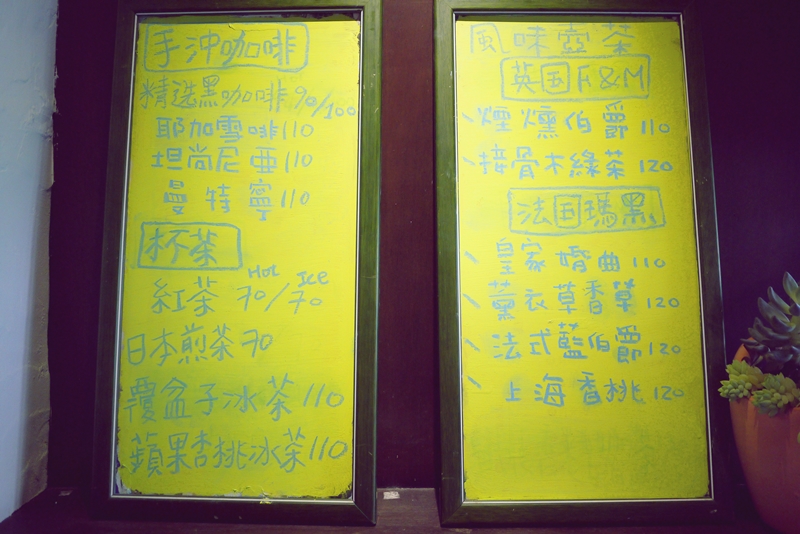 手沖咖啡
精選黑咖啡 90/100
耶加雪啡 110
坦尚尼亞 110
曼特寧 110
杯茶
Hot Ice
紅茶 70/70
日本煎茶 70
覆盆子冰茶 110
蘋果杏桃冰茶 110
風味壺茶
英国F&M
、煙燻伯爵 110
、接骨木綠茶 120
法国瑪黑
、皇家婚曲 110
、薰衣草香草 120
、法式藍伯爵 120
、上海香桃 120